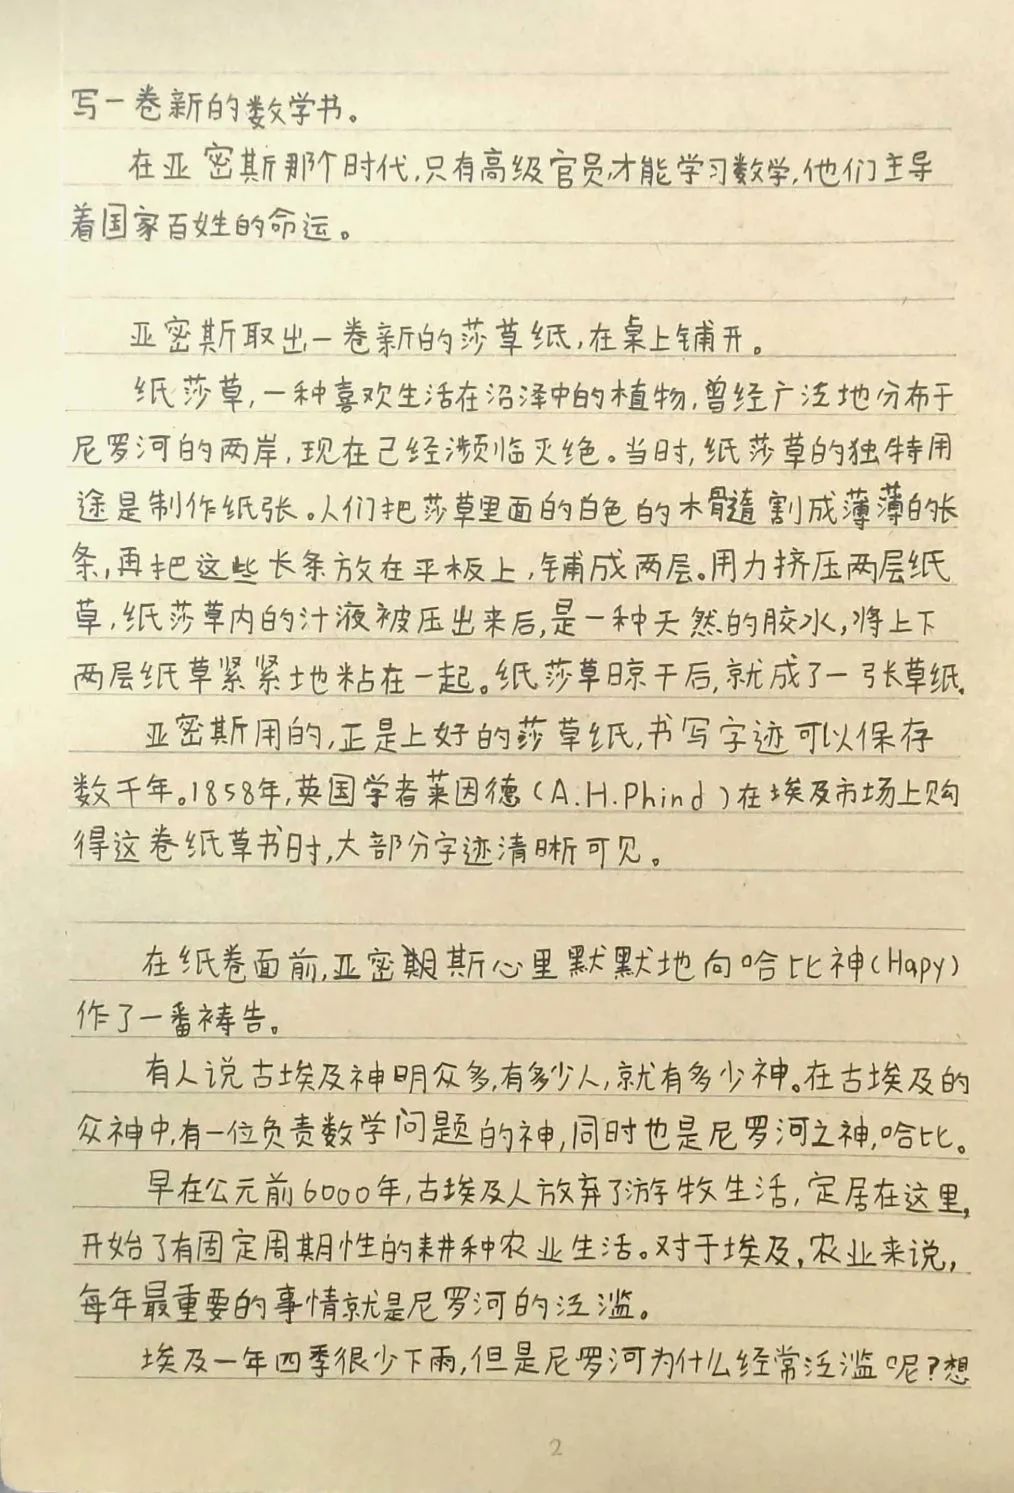 写一卷新的数学书。
在亚密斯那个时代,只有高级官员才能学习数学,他们主导
着国家百姓的命运。
亚密斯取出一卷新的莎草纸,在桌上铺开。
纸莎草,一种喜欢生活在沼泽中的植物,曾经广泛地分布于
尼罗河的两岸,现在已经濒临灭绝。当时,纸莎草的独特用
途是制作纸张。人们把莎草里面的白色的木髓割成薄薄的长
条,再把这些长条放在平板上,铺成两层。用力挤压两层纸
草,纸莎草内的汁液被压出来后,是一种天然的胶水,将上下
两层纸草紧紧地粘在一起。纸莎草晾干后,就成了一张草纸。
亚密斯用的,正是上好的莎草纸,书写字迹可以保存
数千年。1858年,英国学者莱因德(A.H.Phind)在埃及市场上购
得这卷纸草书时,大部分字迹清晰可见。
在纸卷面前,亚密斯心里默默地向哈比神(Hapy)
作了一番祷告。
有人说古埃及神明众多,有多少人,就有多少神。在古埃及的
众神中,有一位负责数学问题的神,同时也是尼罗河之神,哈比。
早在公元前6000年,古埃及人放弃了游牧生活,定居在这里,
开始了有固定周期性的耕种农业生活。对于埃及,农业来说,
每年最重要的事情就是尼罗河的泛滥。
埃及一年四季很少下雨,但是尼罗河为什么经常泛滥呢?想
2